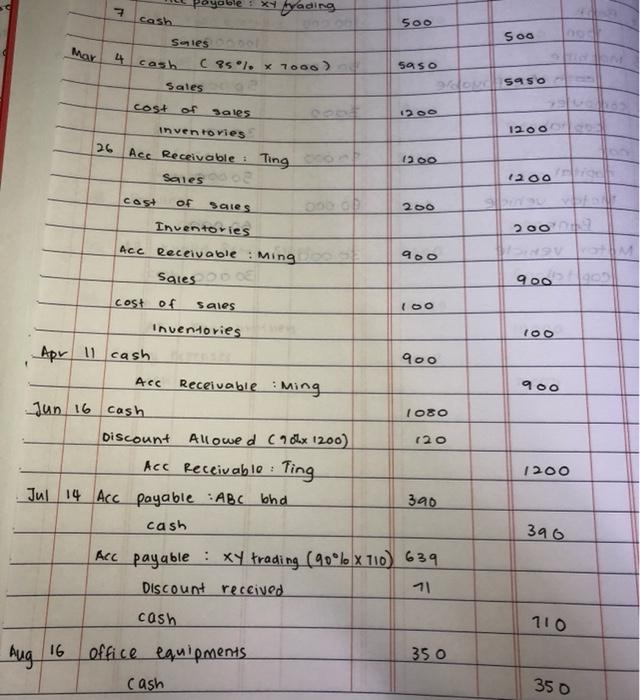 payable : xy trading
7 cash 500
Sales 500
Mar 4 cash ( 85% x 7000 ) 5950
Sales 5950
cost of sales 1200
inventories 1200
26 Acc Receivable : Ting 1200
Sales 1200
cost of sales 200
Inventories 200
Acc Receivable : Ming 900
Sales 900
cost of sales 100
Inventories 100
Apr 11 cash 900
Acc Receivable : Ming 900
Jun 16 cash 1080
Discount Allowed ( x 1200) 120
Acc Receivable : Ting 1200
Jul 14 Acc payable : ABC bhd 390
cash 390
Acc payable : xy trading (90% x 710) 639
Discount received 71
cash 710
Aug 16 office equipments 350
cash 350